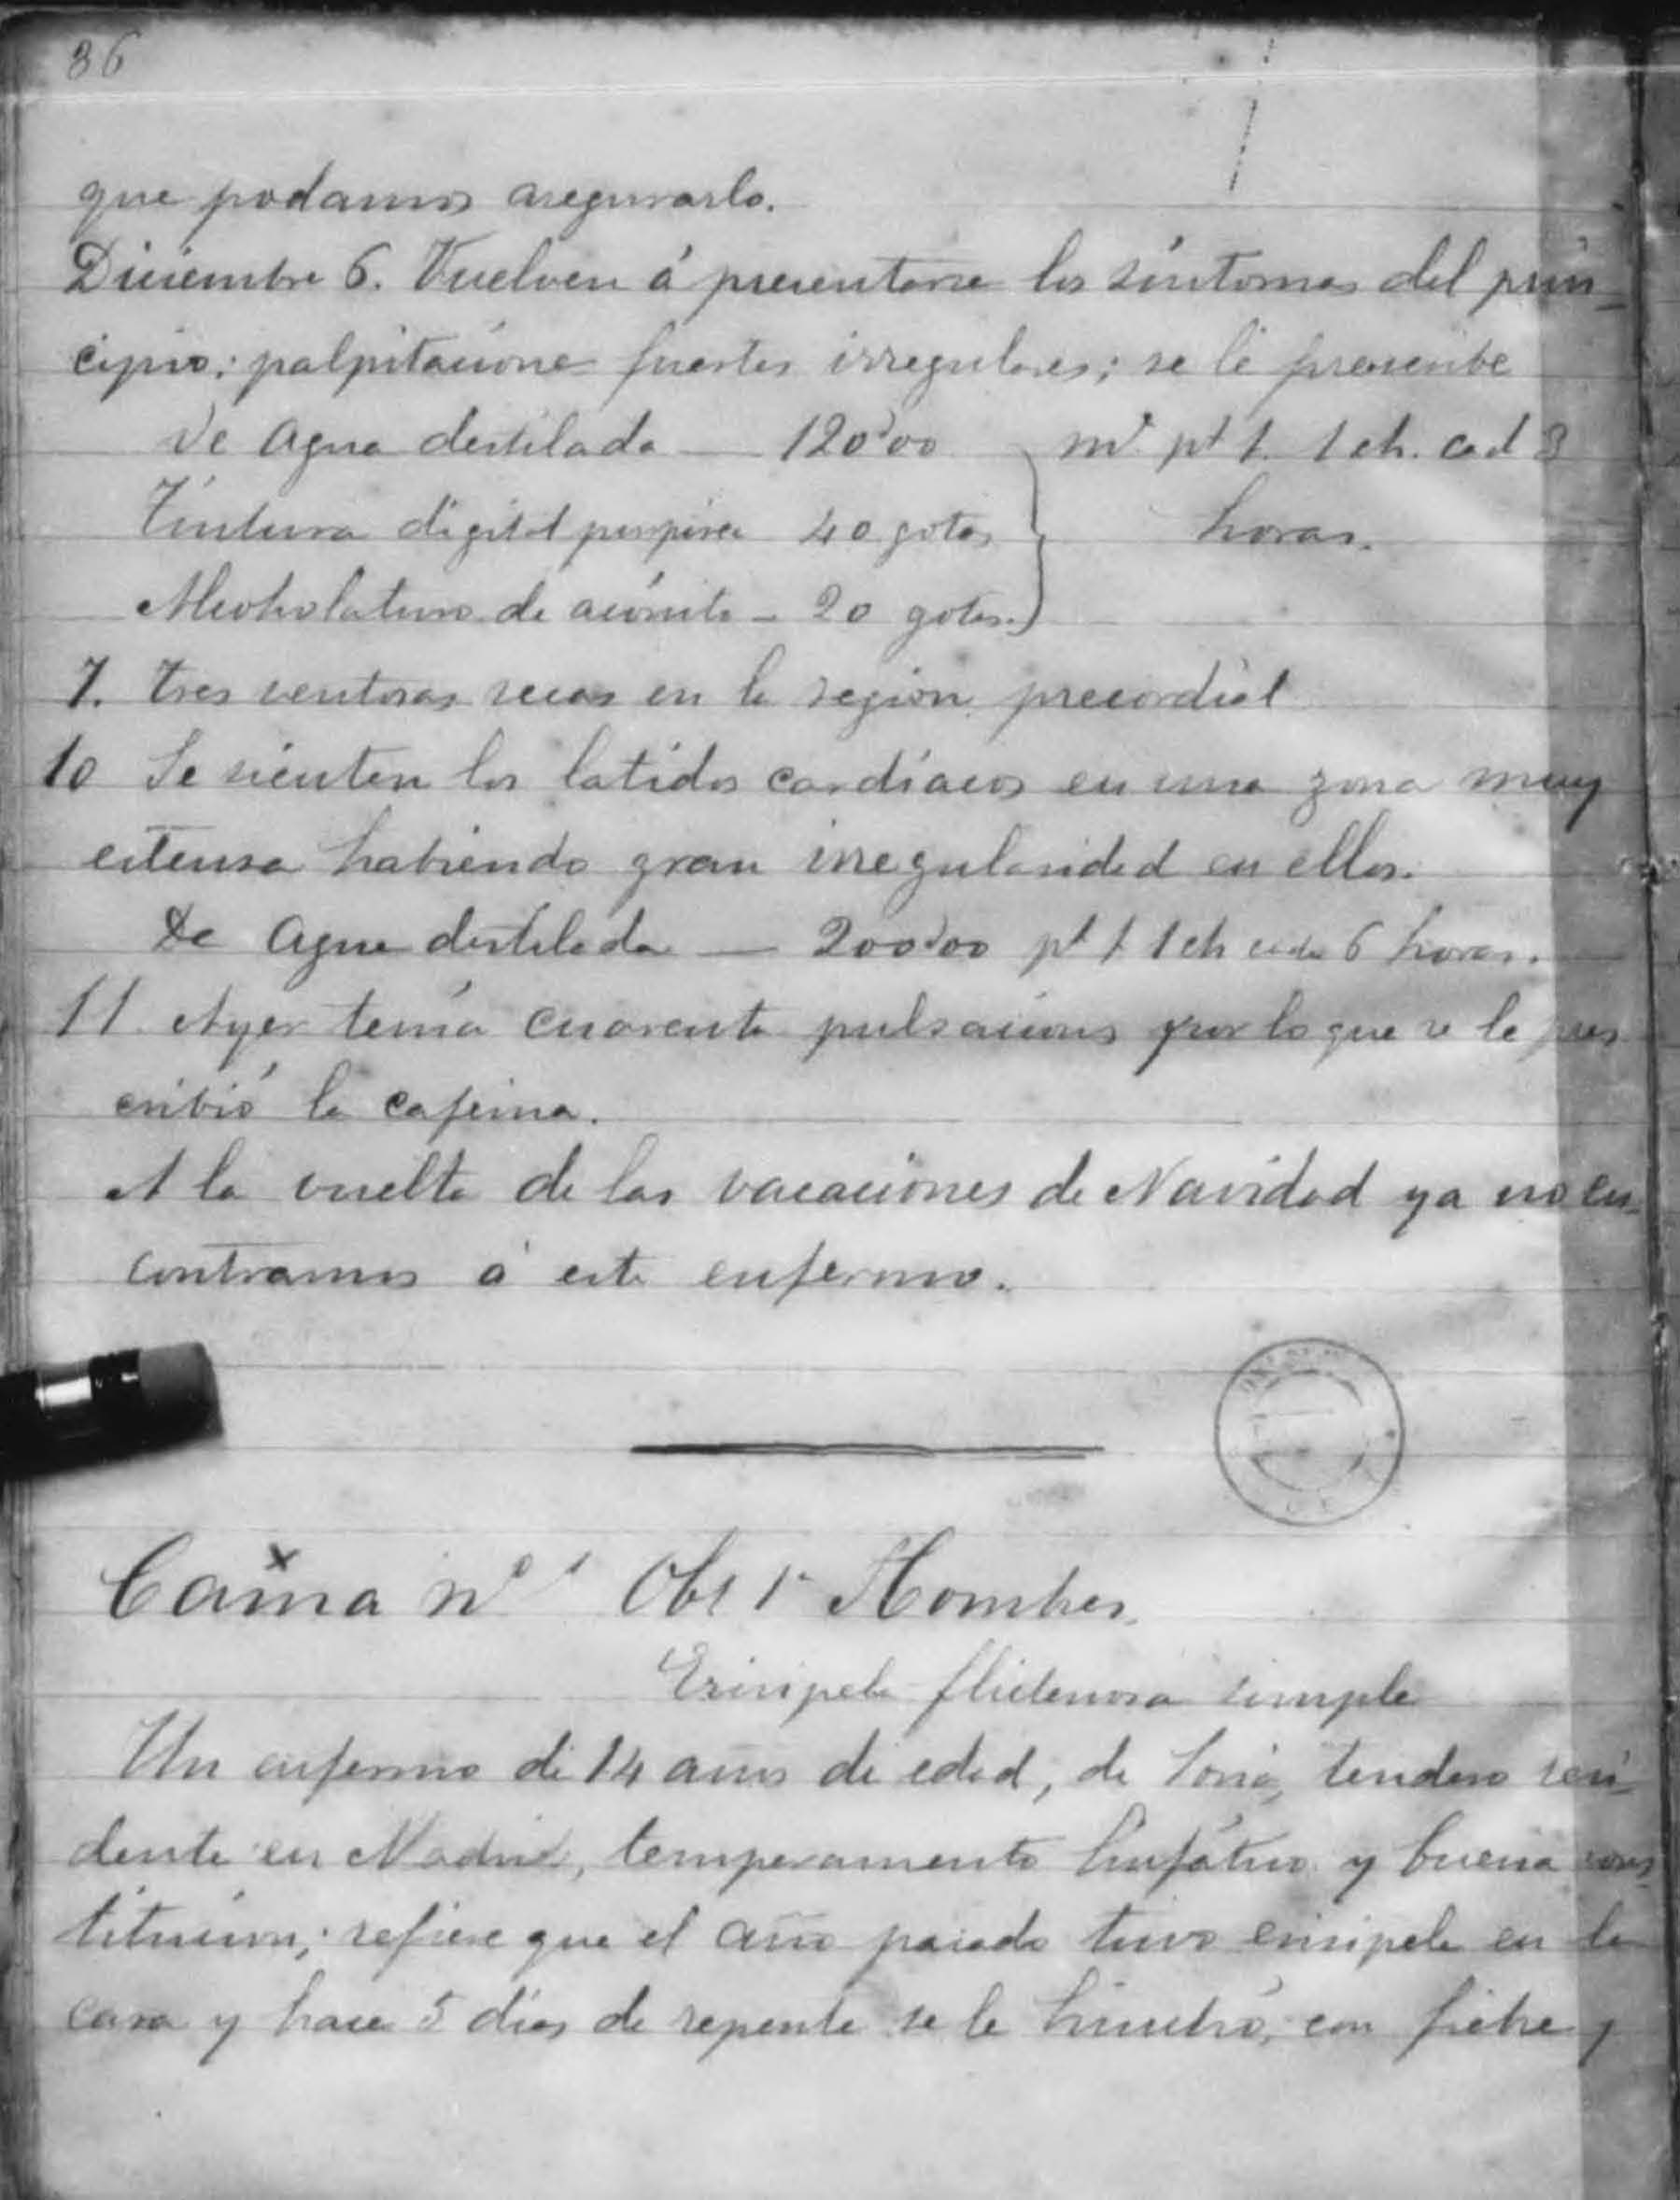 36
que podamos asegurarlo.
Diciembre 6. Vuelven á presentarse los síntomas del prin-
cipio; palpitaciones fuertes irregulares; se le prescribe
De Agua destilada — 120'00 m. pt 1. 1 ch. cad 3
Tintura digital purpurea 40 gotas horas.
Alcoholaturo de acónito - 20 gotas.
7. Tres ventosas secas en la region precordial
10 Se sienten los latidos cardíacos en una zona muy
estensa habiendo gran irregularidad en ellos.
De Agua destilada — 200'00 pt 1 1 ch cada 6 horas.
11. Ayer tenía cuarenta pulsaciones por lo que se le pres
cribió la cafeina.
A la vuelta de las vacaciones de Navidad ya no en-
contramos á este enfermo.
Cama nº 1 Obs 1ª Hombres.
Erisipela flictenosa simple
Un enfermo de 14 años de edad, de Soria, tendero resi-
dente en Madrid, temperamento linfático y buena cons-
titucion; refiere que el año pasado tuvo erisipela en la
cara y hace 5 días de repente se le hinchó, con fiebre y